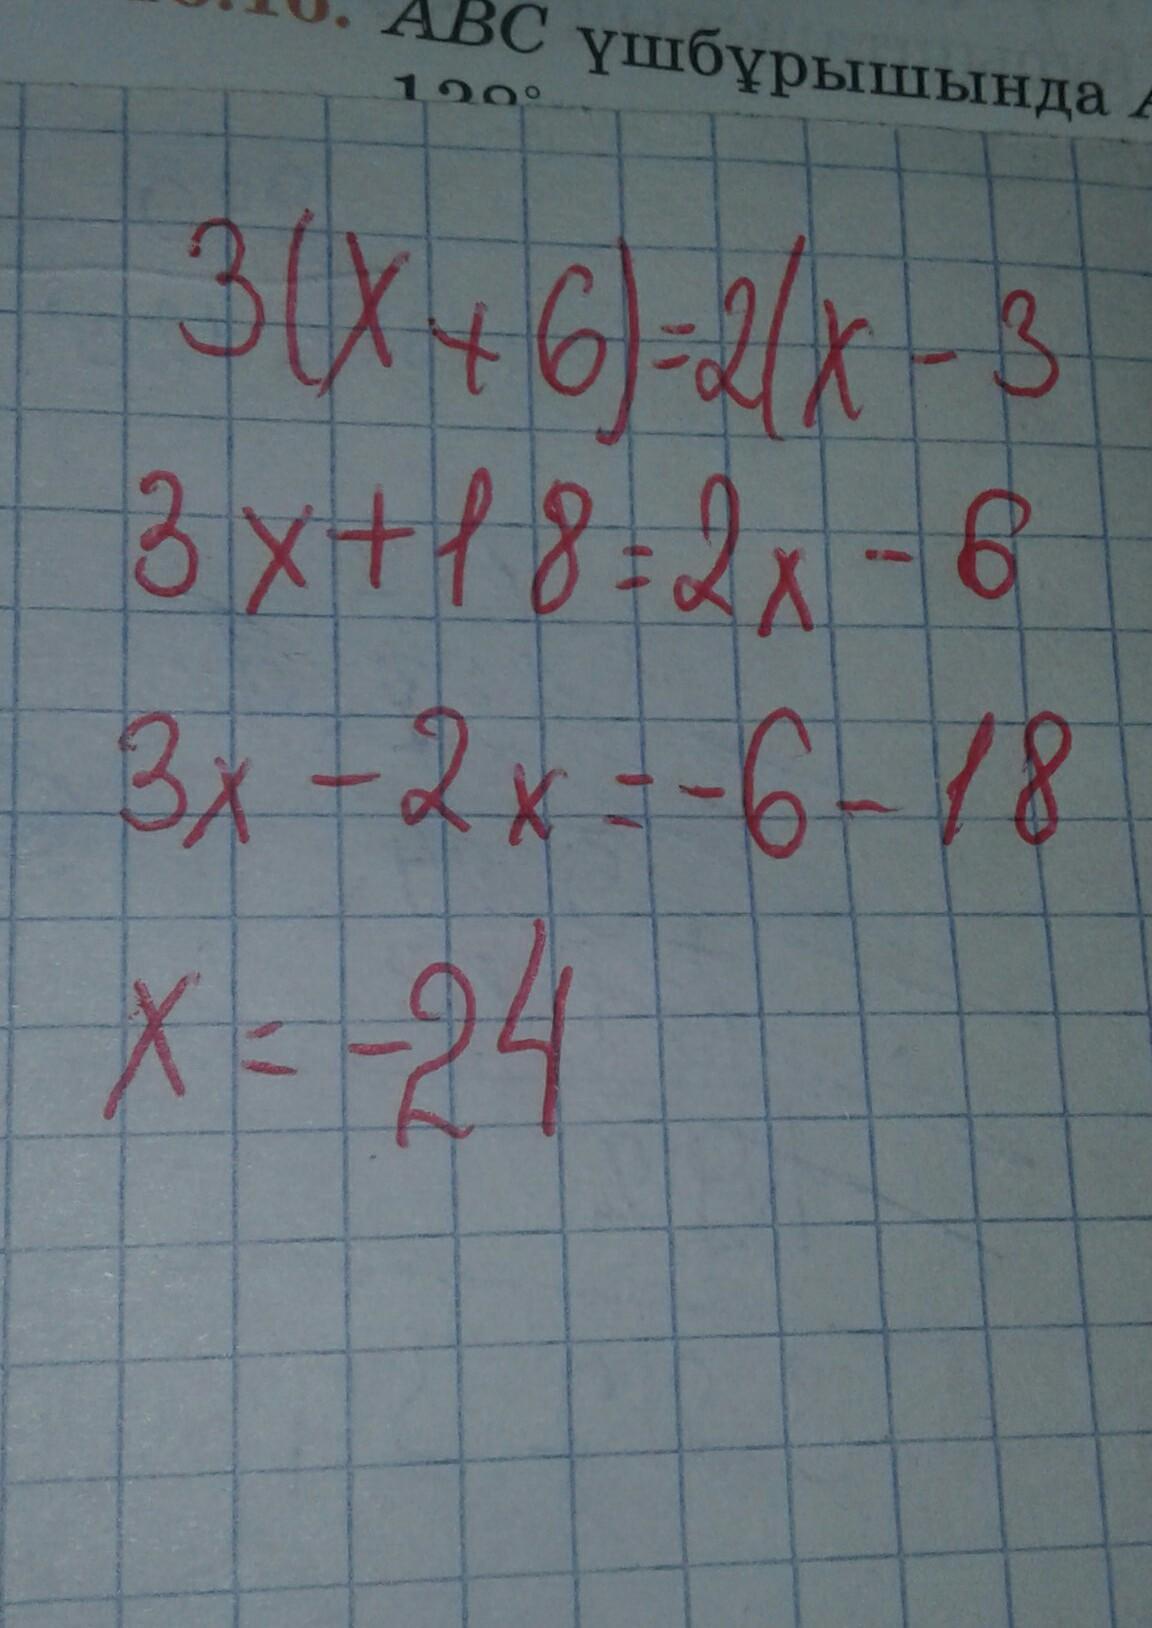 10. ABC үшбұрышында
120°
3(x+6)=2(x-3
3x+18=2x-6
3x-2x=-6-18
x=-24